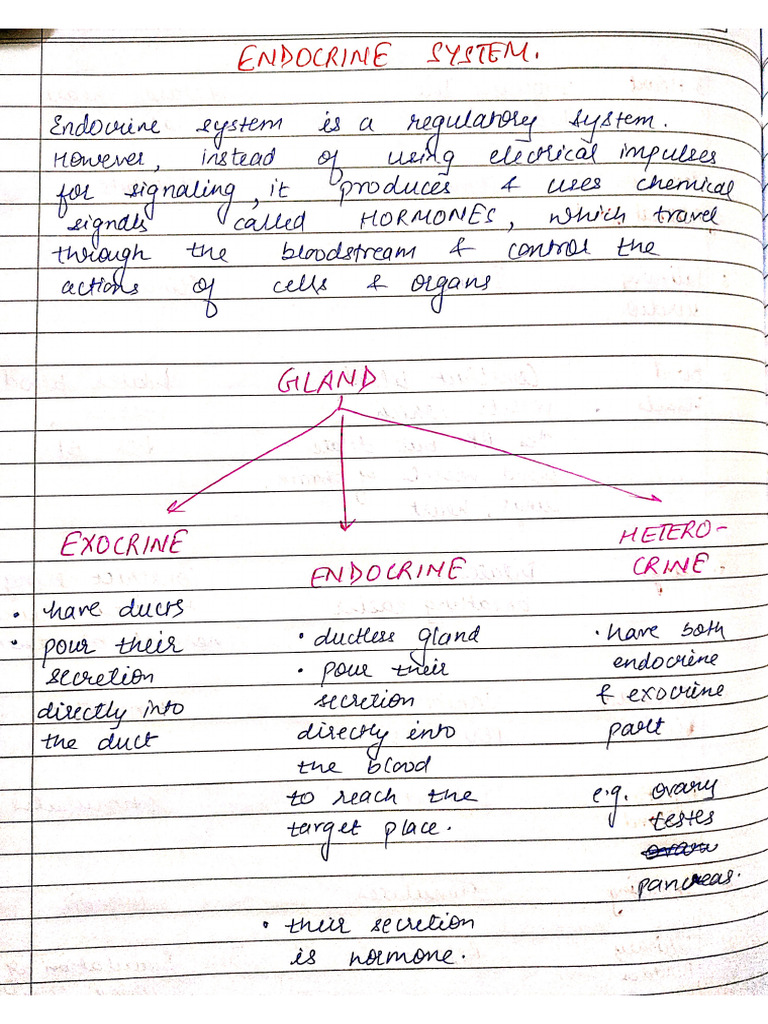 ENDOCRINE SYSTEM.
Endocrine system is a regulatory system.
However, instead of using electrical impulses
for signaling, it produces & uses chemical
signals called HORMONES, which travel
through the bloodstream & control the
actions of cells & organs
GLAND
EXOCRINE
• have ducts
• pour their
secretion
directly into
the duct
ENDOCRINE
• ductless gland
• pour their
secretion
directly into
the blood
to reach the
target place.
• their secretion
is hormone.
HETERO-
CRINE
• have both
endocrine
& exocrine
part
e.g. ovary
testes
pancreas.